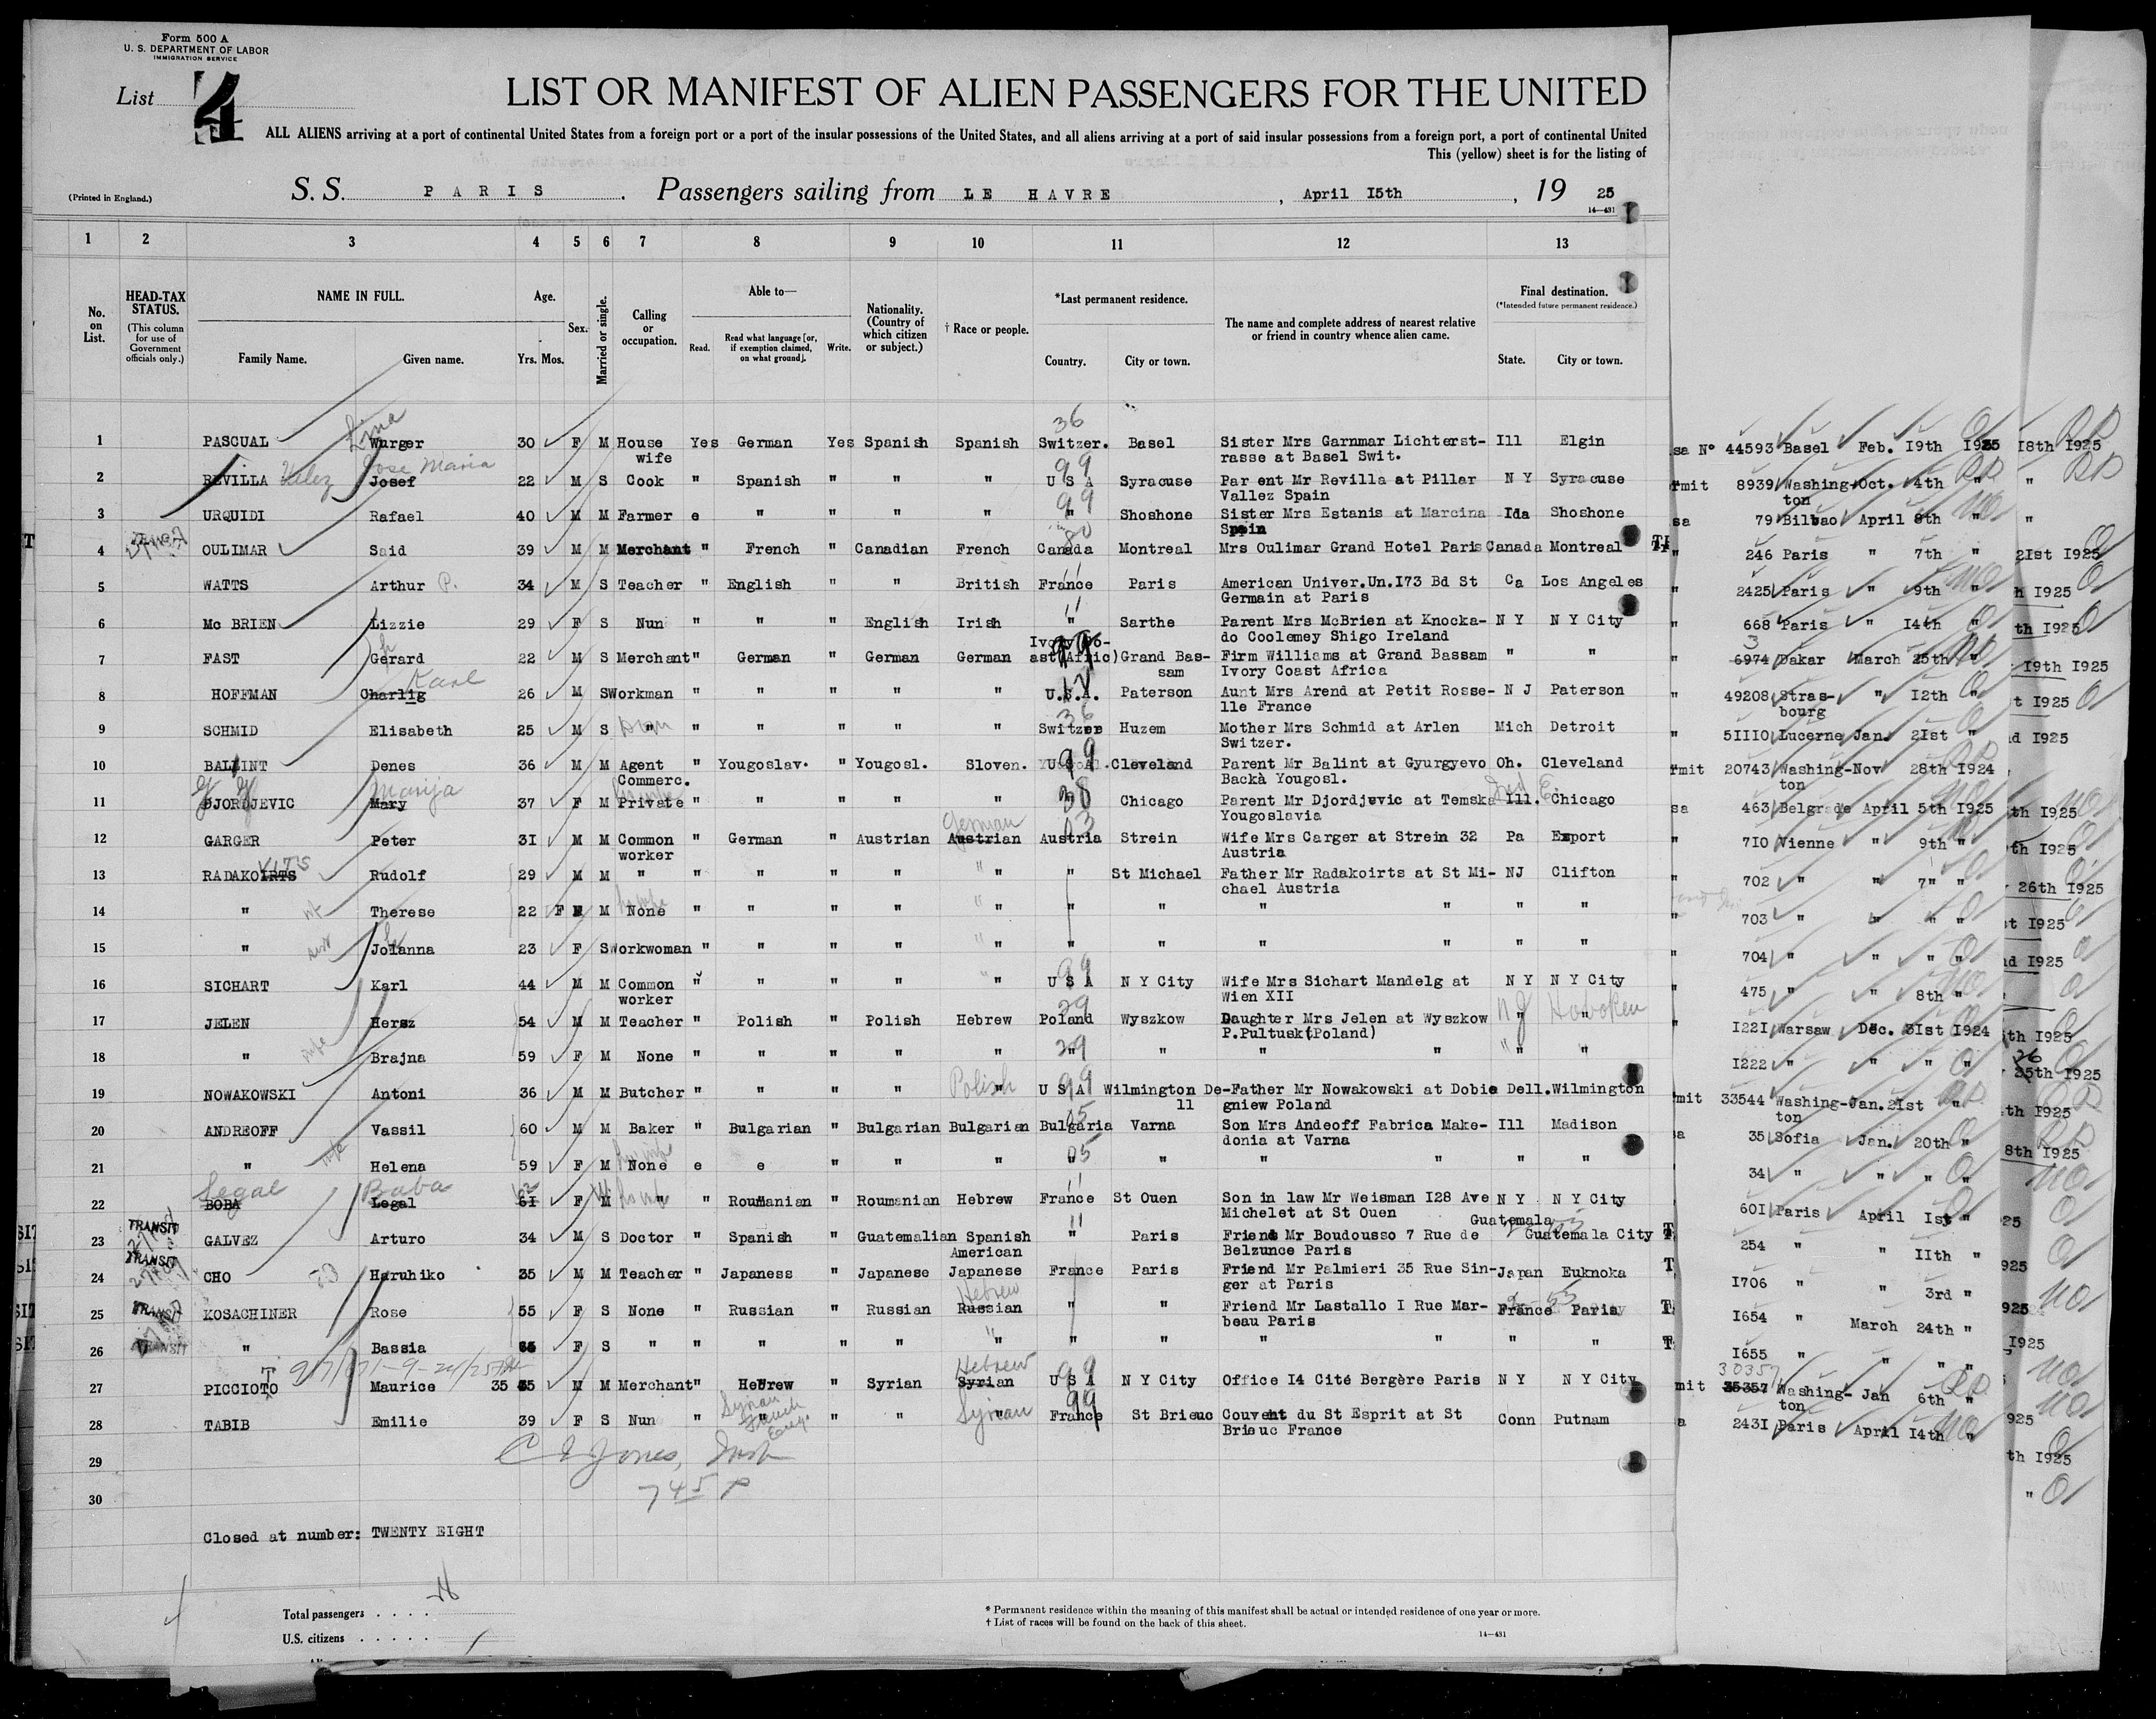 Form 500 A
U. S. DEPARTMENT OF LABOR
IMMIGRATION SERVICE
List 4
LIST OR MANIFEST OF ALIEN PASSENGERS FOR THE UNITED
ALL ALIENS arriving at a port of continental United States from a foreign port or a port of the insular possessions of the United States, and all aliens arriving at a port of said insular possessions from a foreign port, a port of continental United
This (yellow) sheet is for the listing of
(Printed in England.)
S. S. PARIS. Passengers sailing from LE HAVRE, April I5th, 19 25
14—431
1 2 3 4 5 6 7 8 9 10 11 12 13
No. on List.
HEAD-TAX STATUS.
(This column for use of Government officials only.)
NAME IN FULL.
Family Name. Given name.
Age.
Yrs. Mos.
Sex.
Married or single.
Calling or occupation.
Able to—
Read. Read what language [or, if exemption claimed, on what ground]. Write.
Nationality. (Country of which citizen or subject.)
† Race or people.
*Last permanent residence.
Country. City or town.
The name and complete address of nearest relative or friend in country whence alien came.
Final destination.
(*Intended future permanent residence.)
State. City or town.
1 PASCUAL Lina Wurger 30 F M House wife Yes German Yes Spanish Spanish 36 Switzer. Basel Sister Mrs Garnmar Lichterst- rasse at Basel Swit. Ill Elgin sa N° 44593 Basel Feb. I9th I925 I8th I925
2 REVILLA Velez Josef Jose Maria 22 M S Cook " Spanish " " " 99 U S A Syracuse Par ent Mr Revilla at Pillar Vallez Spain N Y Syracuse rmit 8939 Washing- ton Oct. 4th " "
3 URQUIDI Rafael 40 M M Farmer e " " " " 99 " Shoshone Sister Mrs Estanis at Marcina Spain Ida Shoshone sa 79 Bilbao April 8th " "
4 OULIMAR Said 39 M M Merchant " French " Canadian French Canada Montreal Mrs Oulimar Grand Hotel Paris Canada Montreal " 246 Paris " 7th " 2Ist I925
5 WATTS Arthur P. 34 M S Teacher " English " " British 11 France Paris American Univer.Un.I73 Bd St Germain at Paris Ca Los Angeles " 2425 Paris " 9th " h I925
6 Mc BRIEN Lizzie 29 F S Nun " " " English Irish 11 " Sarthe Parent Mrs McBrien at Knocka- do Coolemey Shigo Ireland N Y N Y City " 668 Paris " I4th " th I925
7 FAST Gerard 22 M S Merchant " German " German German Ivory Co- ast(Afric) Grand Bas- sam Firm Williams at Grand Bassam Ivory Coast Africa " " " 6974 Dakar March 25th " I9th I925
8 HOFFMAN Charlig Karl 26 M S Workman " " " " " U.S.A. Paterson Aunt Mrs Arend at Petit Rosse- lle France N J Paterson " 49208 Stras- bourg " I2th " t I925
9 SCHMID Elisabeth 25 M S " " " " " " 36 Switzer Huzem Mother Mrs Schmid at Arlen Switzer. Mich Detroit " 5IIIO Lucerne Jan. 2Ist " d I925
10 BALINT Denes 36 M M Agent Commerc. " Yougoslav. " Yougosl. Sloven. 99 Cleveland Parent Mr Balint at Gyurgyevo Backà Yougosl. Oh. Cleveland rmit 20743 Washing- ton Nov 28th I924
11 DJORDJEVIC Mary Marija 37 F M Private " " " " " Chicago Parent Mr Djordjevic at Temska Yougoslavia Ill. Chicago sa 463 Belgrade April 5th I925 th I925
12 GARGER Peter 3I M M Common worker " German " Austrian Austrian German 03 Austria Strein Wife Mrs Carger at Strein 32 Austria Pa Export " 7IO Vienne " 9th " th I925
13 RADAKOIRTS VITS Rudolf 29 M M " " " " " " " St Michael Father Mr Radakoirts at St Mi- chael Austria NJ Clifton " 702 " " 7" " 26th I925
14 " wf Therese 22 F M None " " " " " " " " " " " " 703 " " " " t I925
15 " Johanna 23 F S Workwoman " " " " " " " " " " " " 704 " " " " d I925
16 SICHART Karl 44 M M Common worker " " " " " 99 U S A N Y City Wife Mrs Sichart Mandelg at Wien XII N Y N Y City " 475 " " 8th "
17 JELEN Hersz 54 M M Teacher " Polish " Polish Hebrew 29 Poland Wyszkow Daughter Mrs Jelen at Wyszkow P.Pultusk(Poland) NJ Hoboken " I22I Warsaw Dec. 3Ist I924 th I925
18 " wife Brajna 59 F M None " " " " " 29 " " " " " " I222 " " " " 25th I925
19 NOWAKOWSKI Antoni 36 M M Butcher " " " " Polish 99 U S A Wilmington De- ll Father Mr Nowakowski at Dobie gniew Poland Dell. Wilmington mit 33544 Washing- ton Jan. 2Ist " th I925
20 ANDREOFF Vassil 60 M M Baker " Bulgarian " Bulgarian Bulgarian 05 Bulgaria Varna Son Mrs Andeoff Fabrica Make- donia at Varna Ill Madison a 35 Sofia Jan. 20th " 8th I925
21 " wife Helena 59 F M None e e " " " 05 " " " " " " 34 " " " "
22 BOBA Segal Legal Baba 6I F M " " Roumanian " Roumanian Hebrew 11 France St Ouen Son in law Mr Weisman I28 Ave Michelet at St Ouen N Y N Y City 60I Paris April Ist " 25
23 TRANSIT GALVEZ Arturo 34 M S Doctor " Spanish " Guatemalian Spanish American 11 " Paris Friend Mr Boudousso 7 Rue de Belzunce Paris Guatemala Guatemala City 254 " " IIth "
24 TRANSIT CHO Haruhiko 35 M M Teacher " Japaness " Japanese Japanese France Paris Friend Mr Palmieri 35 Rue Sin- ger at Paris Japan Euknoka I706 " " 3rd " 925
25 TRANSIT KOSACHINER Rose 55 F S None " Russian " Russian Russian Hebrew " " Friend Mr Lastallo I Rue Mar- beau Paris France Paris I654 " March 24th " 925
26 TRANSIT " Bassia F S " " " " " " " " " " " " I655 " " " " I925
27 PICCIOTO Maurice 35 M M Merchant " Hebrew " Syrian Syrian Hebrew 99 U S A N Y City Office I4 Cité Bergère Paris N Y N Y City mit 35357 30357 Washing- ton Jan 6th "
28 TABIB Emilie 39 F S Nun " Syrian French " " Syrian 99 France St Brieuc Couvent du St Esprit at St Brieuc France Conn Putnam a 243I Paris April I4th " 925
29 th I925
30 "
C E Jones, Insp
7 45 P
Closed at number: TWENTY EIGHT
Total passengers . . . .
U.S. citizens . . . . .
* Permanent residence within the meaning of this manifest shall be actual or intended residence of one year or more.
† List of races will be found on the back of this sheet.
14—431